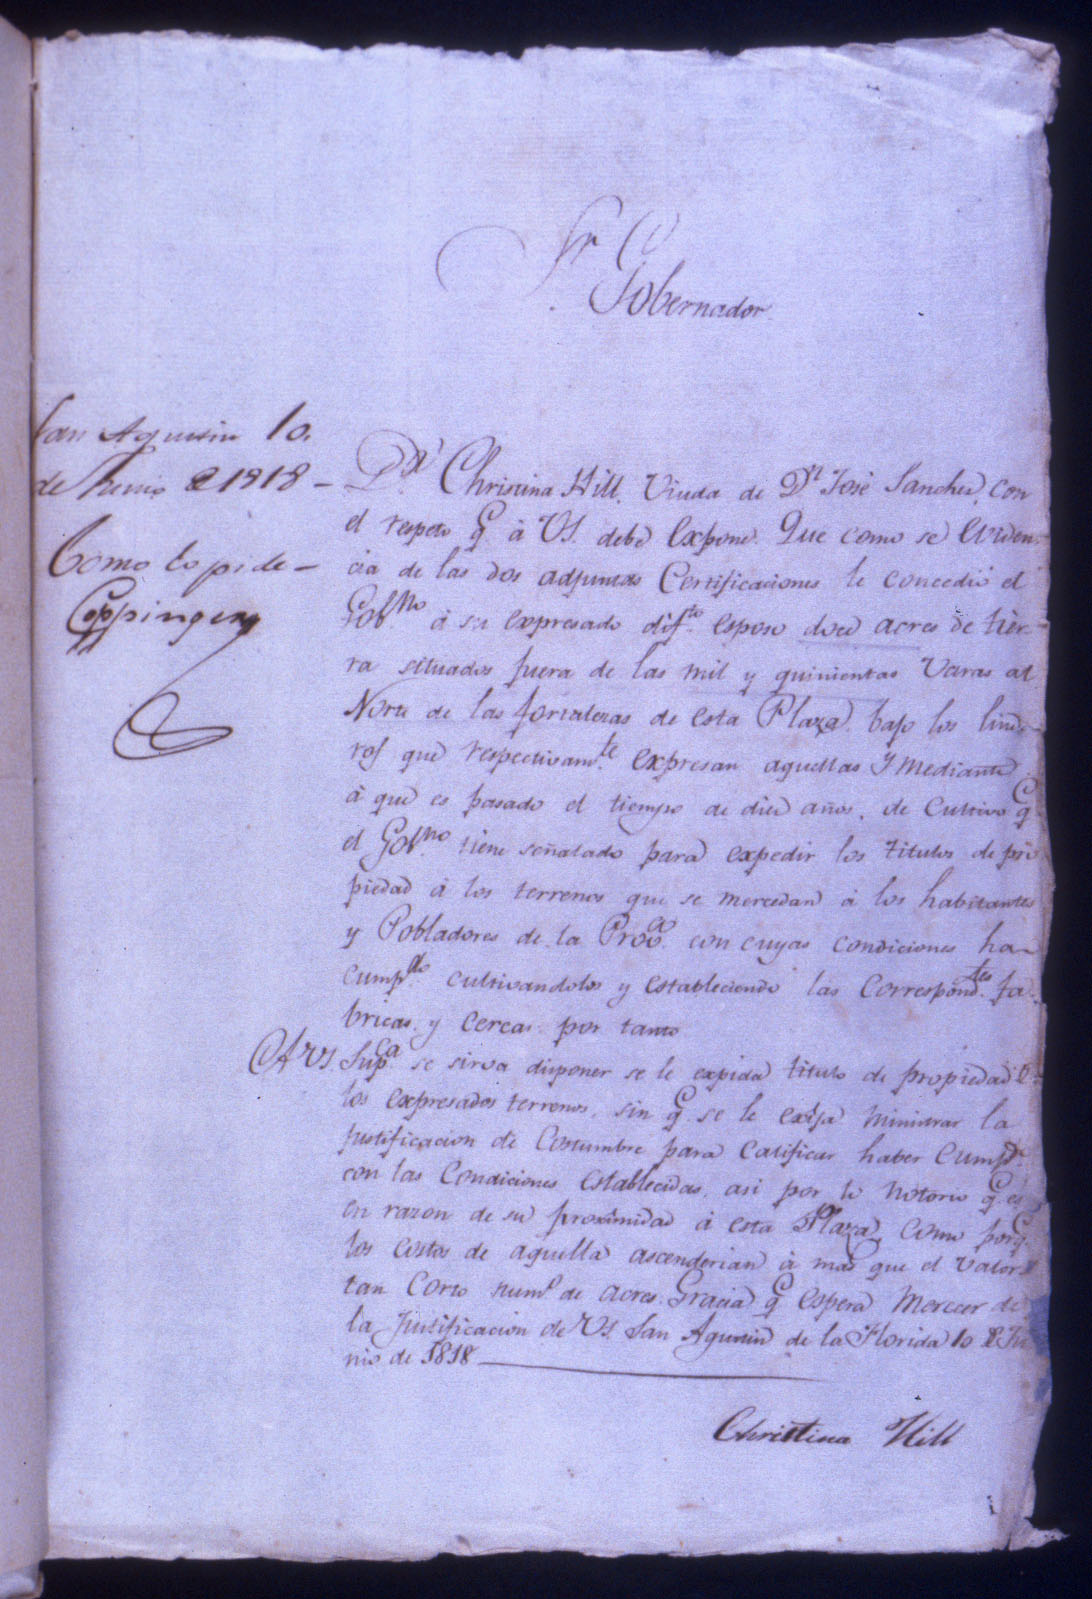 Sr
Gobernador
San Agustin 10.
de Junio de 1818 –
Como lo pide –
Coppinger
Dª Christina Hill, Viuda de Dn José Sanchez, con
el respeto q. à VS. debe Expone. Que como se Eviden-
cia de las dos adjuntas Certificaciones le concedió el
Gobno à su expresado difto esposo doce acres de tier-
ra situados fuera de las mil y quinientas Varas al
Norte de las fortalezas de esta Plaza, bajo los linde-
ros que respectivamte expresan aquellas y mediante
à que es pasado el tiempo de diez años, de Cultivo q.
el Gobno tiene señalado para expedir los titulos de pro
piedad à los terrenos que se mercedan à los habitantes
y Pobladores de la Provª. con cuyas condiciones ha
cumpdo cultivandolos y estableciendo las Correspondtes fa-
bricas y cercas: por tanto
A VS. Supca se sirva disponer se le expida titulo de propiedad de
los expresados terrenos, sin q. se le exija ministrar la
justificacion de Costumbre para calificar haber Cumpdo
con las Condiciones establecidas, asi por lo notorio q. es
en razon de su proximidad à esta Plaza, como porq.
los costos de aquella ascenderian à mas que el valor de
tan Corto numo de acres: Gracia q. espera merecer de
la Justificacion de VS. San Agustin de la Florida 10 de Ju
nio de 1818
Christina Hill